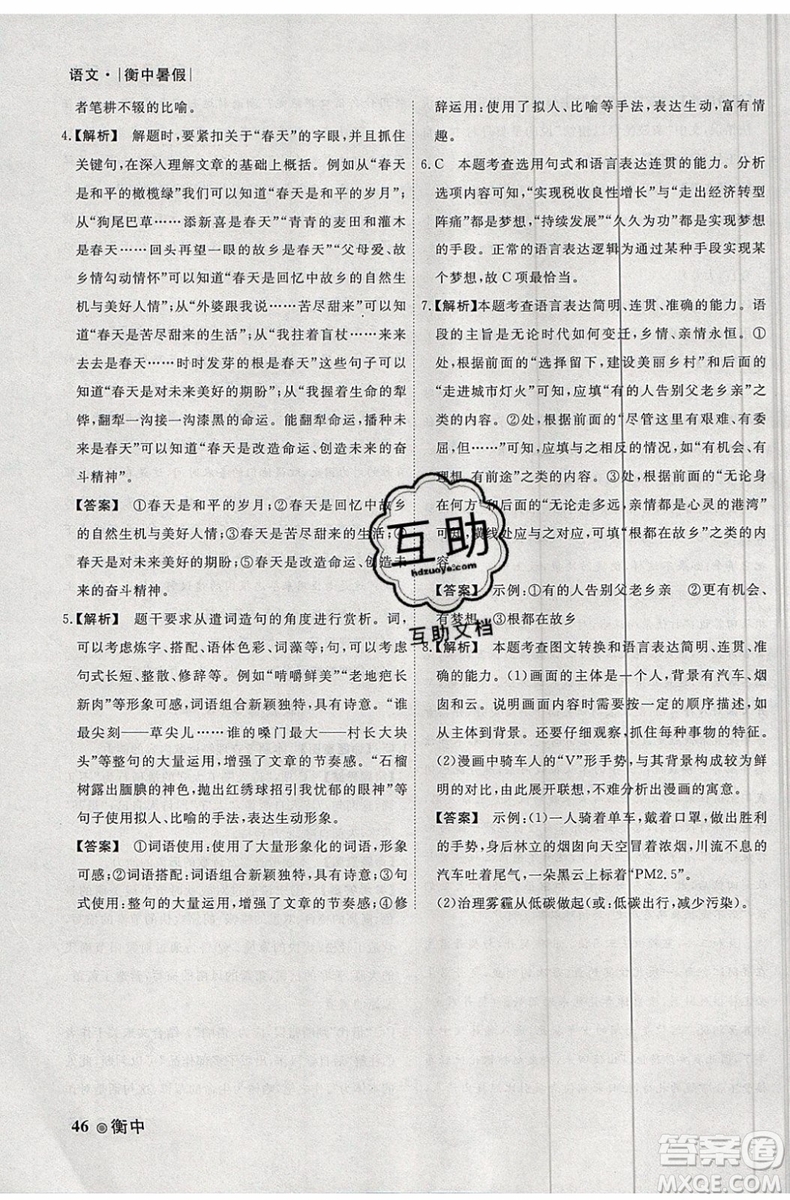 语文·|衡中暑假|
者笔耕不辍的比喻。
4.【解析】 解题时,要紧扣关于“春天”的字眼,并且抓住
关键句,在深入理解文章的基础上概括。例如从“春天
是和平的橄榄绿”我们可以知道“春天是和平的岁月”;
从“狗尾巴草……添新喜是春天”“青青的麦田和灌木
是春天……回头再望一眼的故乡是春天”“父母爱、故
乡情勾动情怀”可以知道“春天是回忆中故乡的自然生
机与美好人情”;从“外婆跟我说……苦尽甘来”可以知
道“春天是苦尽甜来的生活”;从“找来盲杖……来来去
去是春天……时时发芽的根是春天”这些句子可以知
道“春天是对未来美好的期盼”;从“春天是生命的犁
铧,翻犁一沟沟漆黑的命运。能翻犁疾病、翻犁人间疾
苦”可以知道“春天是改造命运、创造美好未来的奋
斗精神”。
【答案】 ①春天是和平的岁月;②春天是回忆中故乡
的自然生机与美好人情;③春天是苦尽甘来的生活;④
春天是对未来美好的期盼;⑤春天是改造命运、创造未
来的奋斗精神。
5.【解析】 题干要求从遣词造句的角度进行赏析。词,
可以考虑炼字、搭配、语体色彩、词藻等;句,可以考虑
句式长短、整散、修辞等。例如“啃嚼鲜美”“老地疤长
新肉”等形象可感,词语组合新颖独特,具有诗意。“谁
最尖刻——草尖儿……谁的嗓门最大——村长大块
头”等整句的大量运用,增强了文章的节奏感。“石榴
树露出腼腆的神色,抛出红绣球招引我忧郁的眼神”等
句子使用拟人、比喻的手法,表达生动形象。
【答案】 ①词语使用:使用了大量形象化的词语,形象
可感;②词语搭配:词语组合新颖独特,具有诗意;③句
式使用:整句的大量运用,增强了文章的节奏感;④修
辞运用:使用了拟人、比喻等手法,表达生动,富有情
趣。
6.C 本题考查选用句式和语言表达连贯的能力。分析
选项内容可知,“实现税收良性增长”与“走出经济转型
阵痛”都是梦想,“持续发展”“久久为功”是实现梦想
的手段。正常的语言表达逻辑为通过某种手段实现某
个梦想,故C项最恰当。
7.【解析】本题考查语言表达简明、连贯、准确的能力。语
段的主旨是无论时代如何变迁,乡情、亲情永恒。①
处,根据前面的“选择留下,建设美丽乡村”和后面的
“走进城市灯火”可知,应填“有的人告别父老乡亲”之
类的内容。②处,根据前面的“尽管这里有艰难、有委
屈,但……”可知,应填与之相反的情况,如“有机会、有
理想、有前途”之类的内容。③处,前面的“无论身
在何方”和后面的“无论走多远,亲情都是心灵的港湾”
可知,横线处应与之对应,可填“根都在故乡”之类的内
容。
【答案】 示例:①有的人告别父老乡亲 ②更有机会、
有梦想 ③根都在故乡
8.【解析】 本题考查图文转换和语言表达简明、连贯、准
确的能力。(1)画面的主体是一个人,背景有汽车、烟
囱和云。描述画面内容时,需要按照一定的顺序描述,如
从主体到背景。还要仔细观察,抓住每种事物的特征。
(2)漫画中骑车人的“V”形手势,与其背景构成了鲜
明的对比,由此展开联想,不难分析出漫画的寓意。
【答案】 示例:(1)一人骑着单车,戴着口罩,做出胜利
的手势,身后林立的烟囱向天空冒着浓烟,川流不息的
汽车吐着尾气,一朵黑云上标着“PM2.5”。
(2)治理雾霾从低碳做起(或:低碳出行,减少污染)。
互助
hdzuoye.com
互助文档
46 衡中
答案圈
MXQE.COM